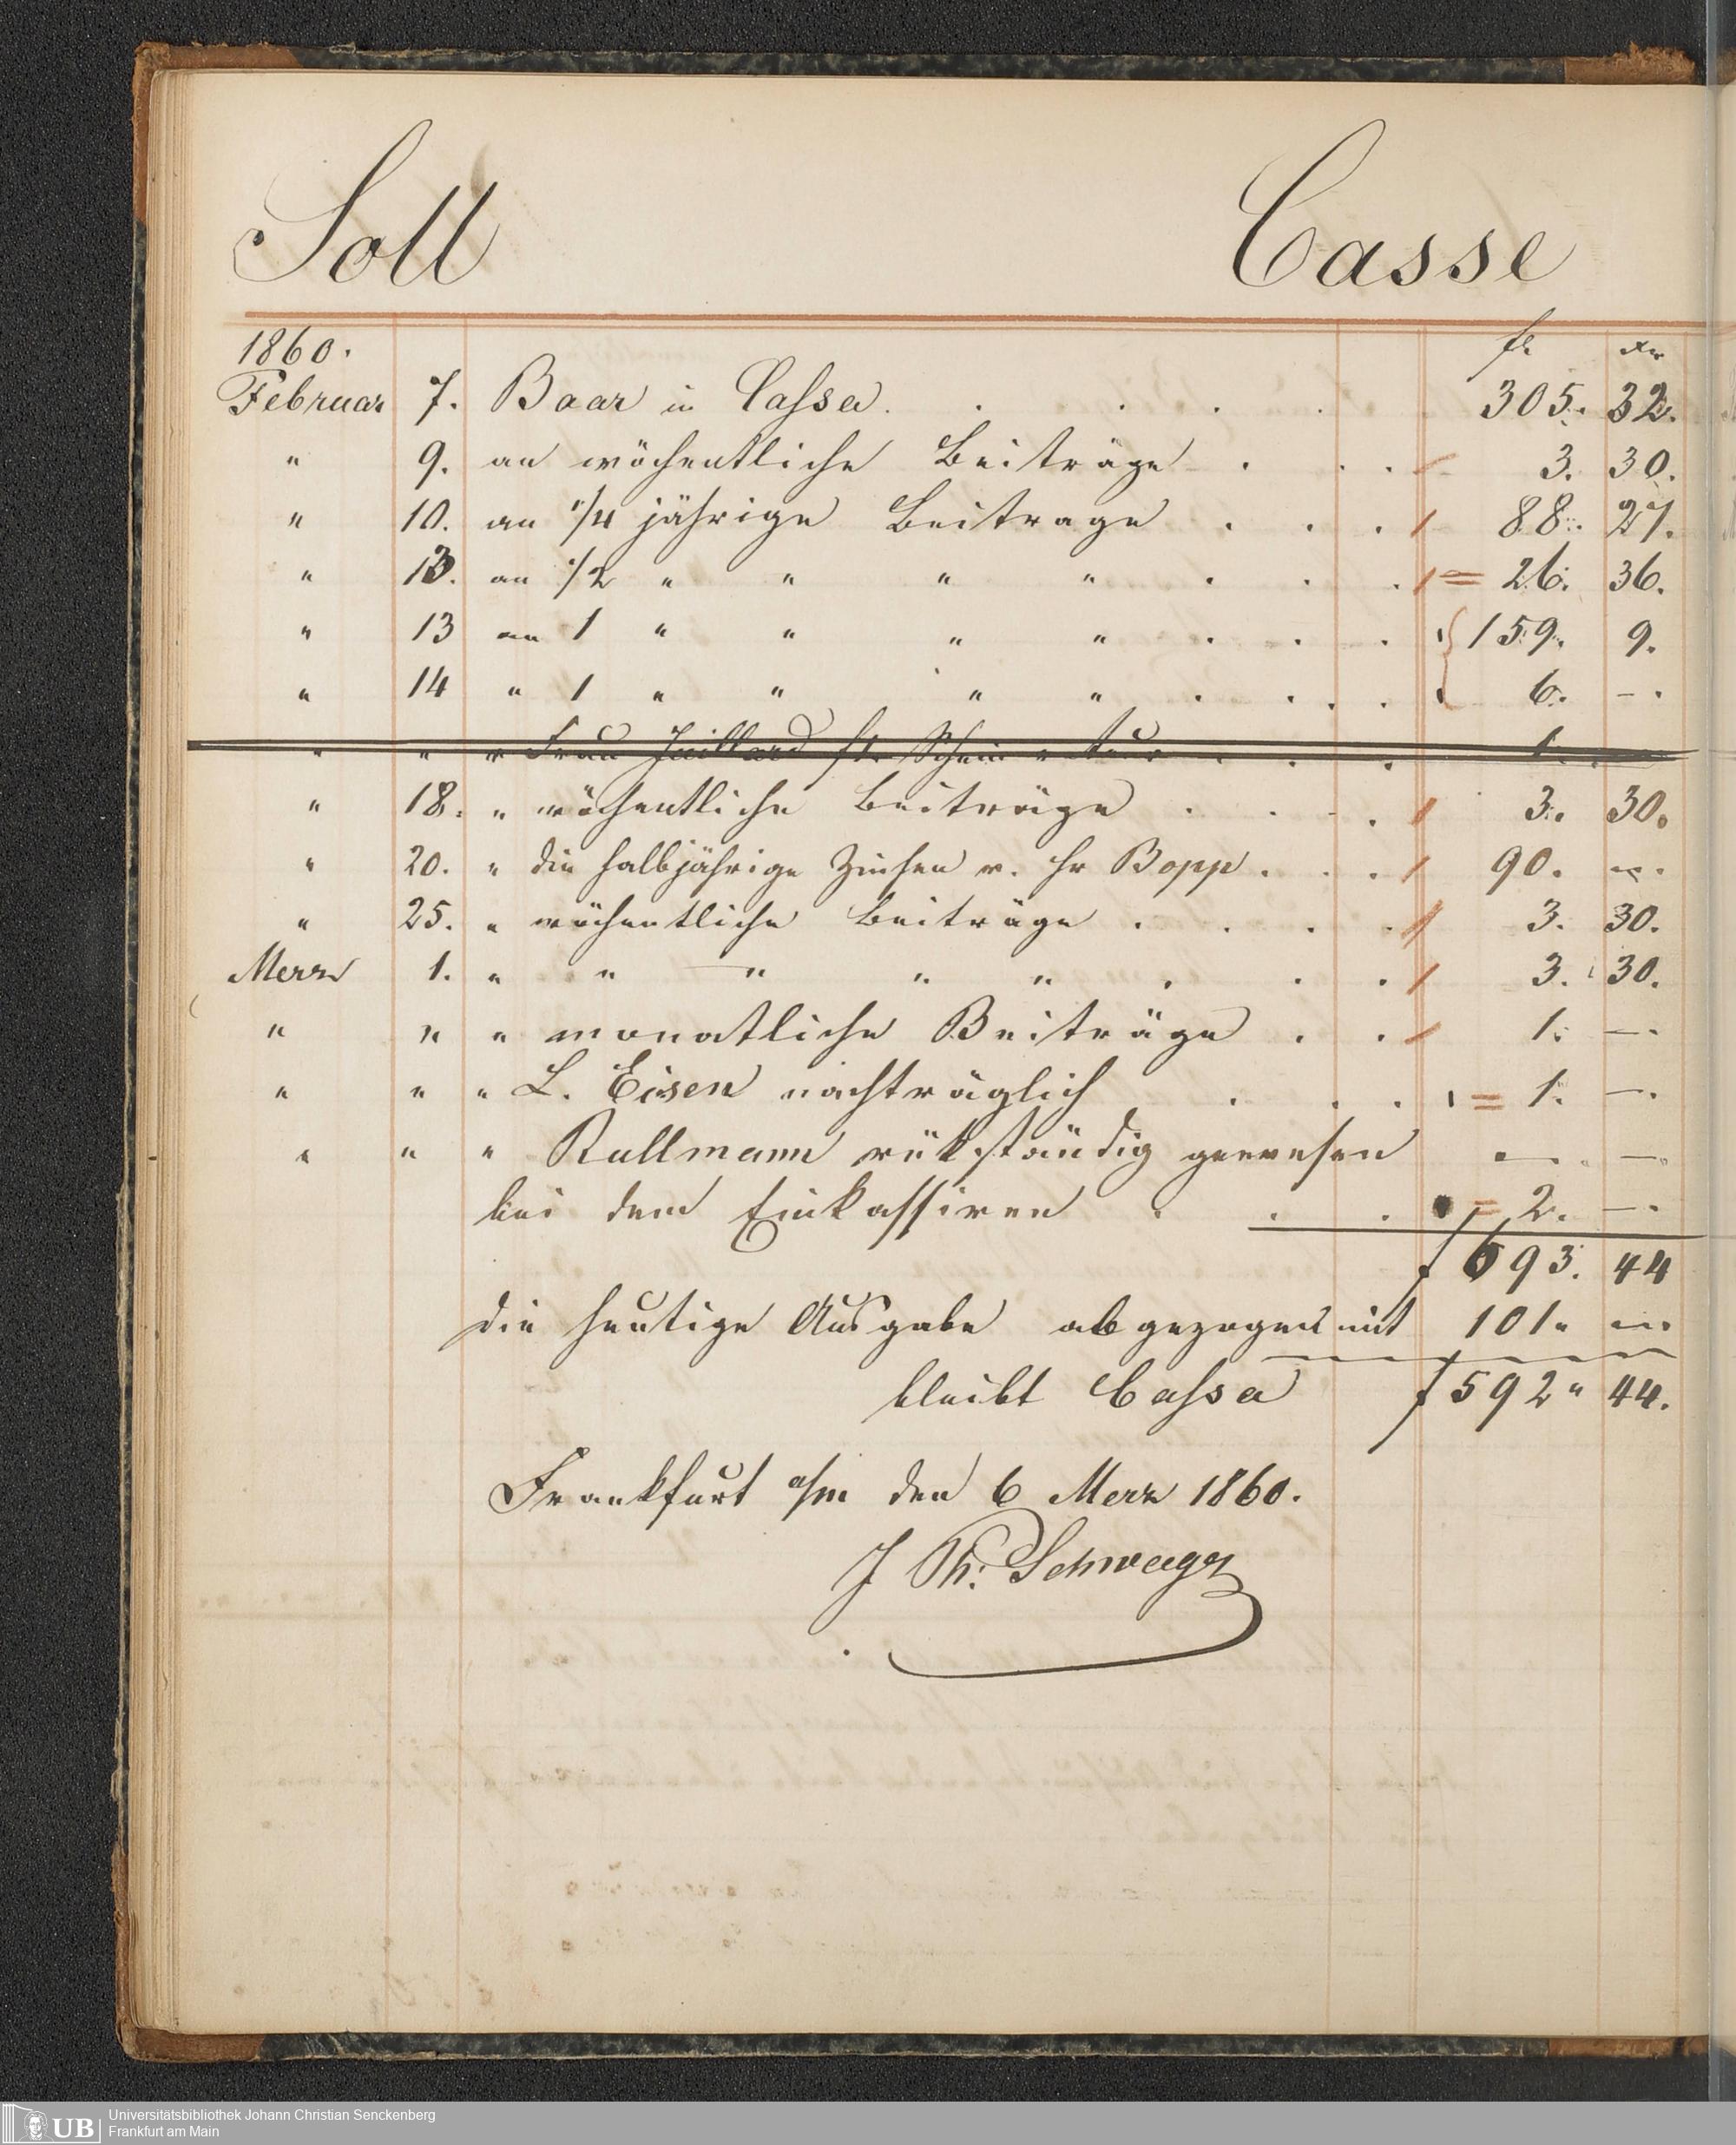 Soll Casse
1860. fl xr
Februar 7. Baar in Cassa. . . . . 305. 32.
" 9. an wöchentliche Beiträge . . . 3. 30.
" 10. an 1/4 jährige Beitrage . . . 88. 27.
" 13. an 1/2 " " " " . . . 26. 36.
" 13 an 1 " " " " . . . 159. 9.
" 14 " 1 " " " " . . . . 6. – .
" " " Frau . . . 1. . –
" 18. " wöchentliche Beiträge . . . . 3. 30.
" 20. " die halbjährige Zinsen v. Hr Bopp . . . 90. – .
" 25. " wöchentliche Beiträge . . . . 3. 30.
Merz 1. " " — " " " . . . 3. 30.
" " " monatliche Beiträge . . 1. — .
" " " L. Eisen nachträglich . . . 1. — .
" " " Rullmann rükständig gewesen — . — .
bei dem Einkassiren . . . 2. — .
f 693. 44
die heutige Ausgabe abgezogen mit 101 " — .
bleibt Cassa f 592 " 44.
Frankfurt a/m den 6 Merz 1860.
J Th: Schwager
UB Universitätsbibliothek Johann Christian Senckenberg
Frankfurt am Main